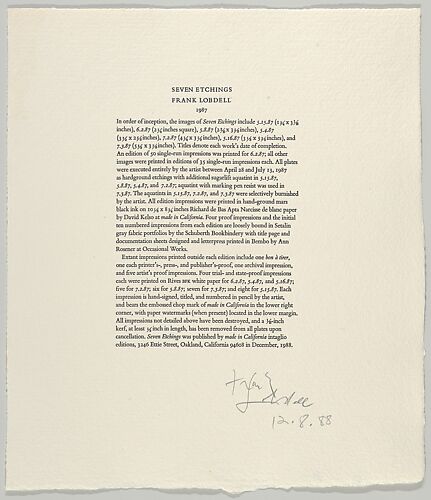 SEVEN ETCHINGS
FRANK LOBDELL
1987
In order of inception, the images of Seven Etchings include 5.15.87
inches), 6.2.87 inches square), 5.8.87 inches), 5.4.87
inches), 7.2.87 inches), 5.16.87 inches), and
7.3.87 inches). Titles denote each work's date of completion.
An edition of 50 single-run impressions was printed for 6.2.87; all other
images were printed in editions of 35 single-run impressions each. All plates
were executed entirely by the artist between April 28 and July 23, 1987
as hardground etchings with additional sugarlift aquatint in 5.15.87,
5.8.87, 5.4.87, and 7.2.87; aquatint with marking pen resist was used in
7.3.87. The aquatints in 5.15.87, 7.2.87, and 7.3.87 were selectively burnished
by the artist. All edition impressions were printed in hand-ground mars
black ink on inches Richard de Bas Apta Narcisse de blanc paper
by David Kelso at made in California. Four proof impressions and the initial
ten numbered impressions from each edition are loosely bound in Setalin
gray fabric portfolios by the Schuberth Bookbindery with title page and
documentation sheets designed and letterpress printed in Bembo by Ann
Rosener at Occasional Works.
Extant impressions printed outside each edition include one bon à tirer,
one each printer's-, press-, and publisher's-proof, one archival impression,
and five artist's proof impressions. Four trial- and state-proof impressions
each were printed on Rives BFK white paper for 6.2.87, 5.4.87, and 5.16.87;
five for 7.2.87; six for 5.8.87; seven for 7.3.87; and eight for 5.15.87. Each
impression is hand-signed, titled, and numbered in pencil by the artist,
and bears the embossed chop mark of made in California in the lower right
corner, with paper watermarks (when present) located in the lower margin.
All impressions not detailed above have been destroyed, and a
kerf, at least inch in length, has been removed from all plates upon
cancellation. Seven Etchings was published by made in California intaglio
editions, 3246 Ettie Street, Oakland, California 94608 in December, 1988.
Frank Lobdell
12.8.88